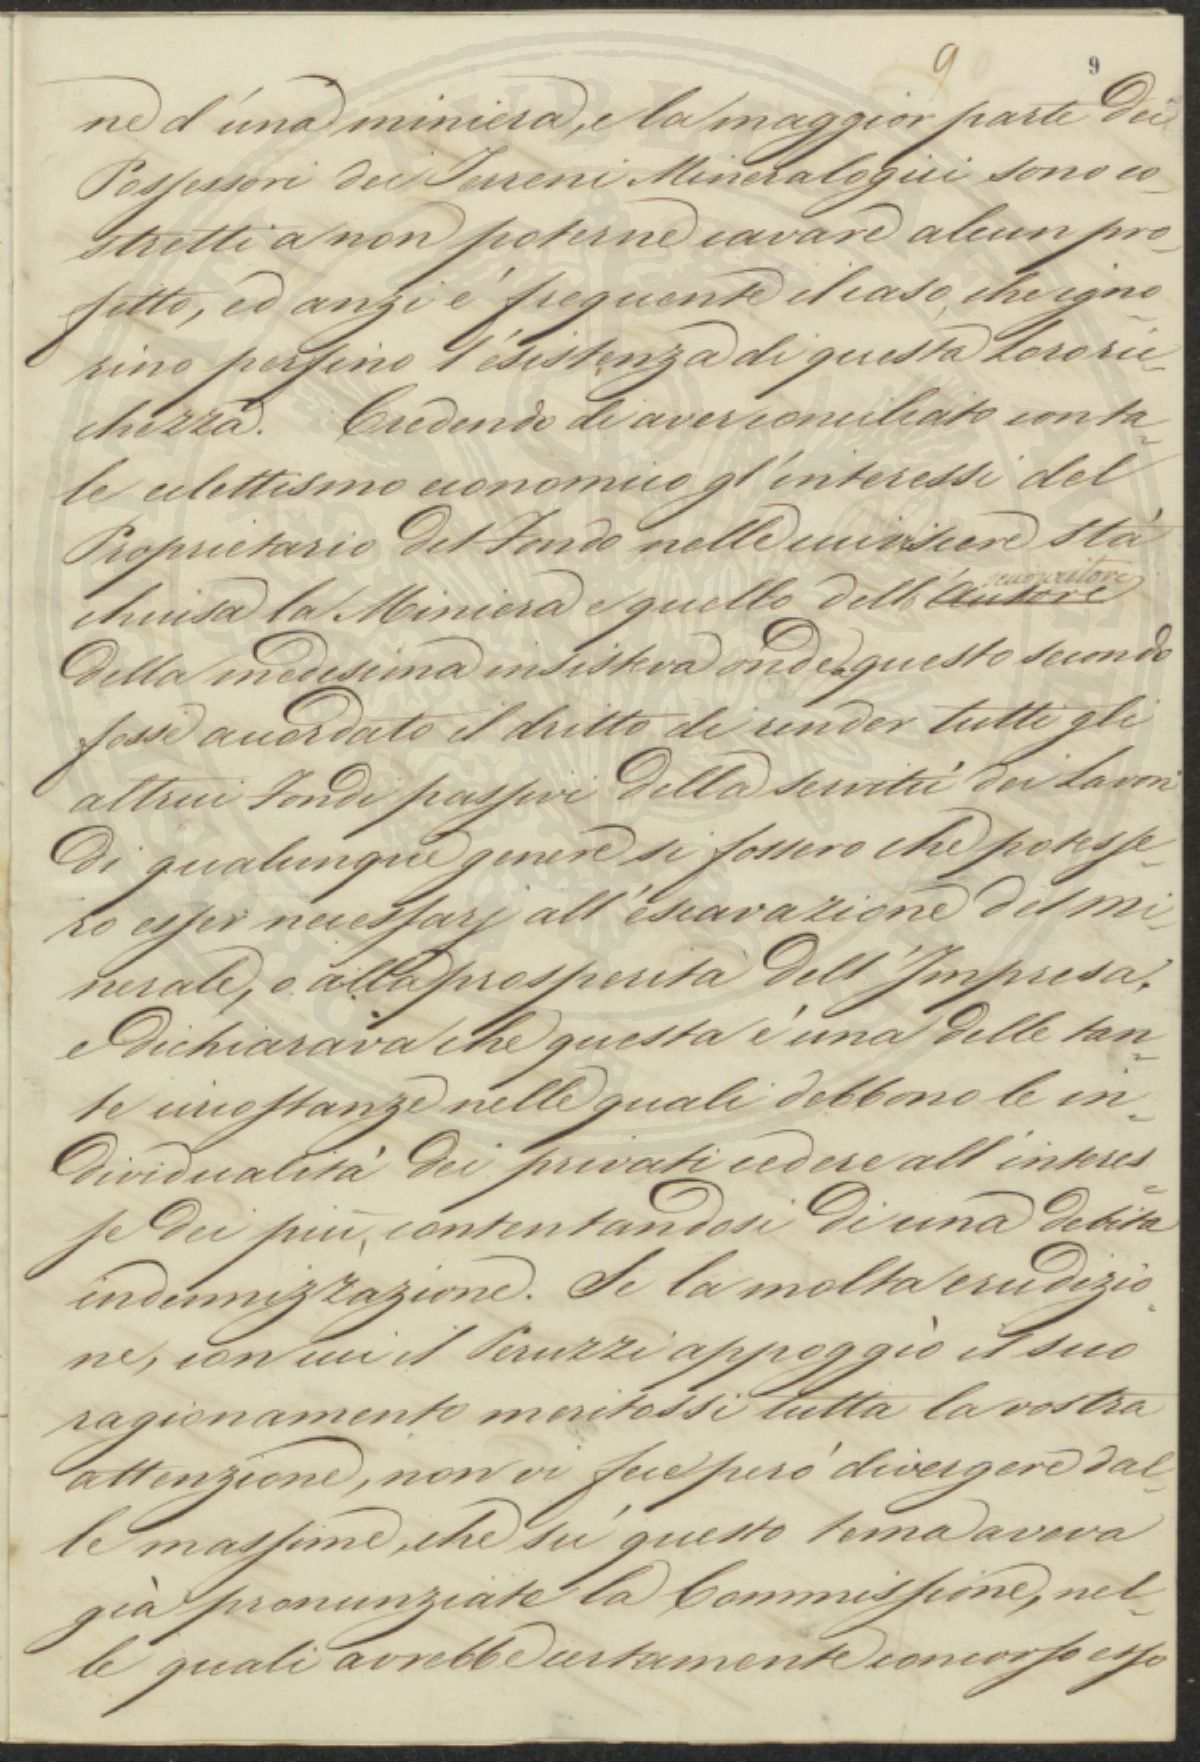 9 9
ne d'una miniera, e la maggior parte dei
Possessori dei Terreni Mineralogici sono co-
stretti a non poterne cavare alcun pro-
fitto, ed anzi é frequente il caso, che igno-
rino perfino l'esistenza di questa loro ric-
chezza. Credendo di aver conciliato con ta-
le eclettismo economico gl'interessi del
Proprietario del Fondo nelle cui viscere stà
chiusa la Miniera e quello dello scuopritore
l'autore
della medesima insisteva onde a questo secondo
fosse accordato il dritto di render tutti gli
altrui Fondi passivi della servitù dei Lavori
di qualunque genere si fossero che potesse-
ro esser necessarj all'escavazione del mi-
nerale, o alla prosperità dell'Impresa,
e dichiarava che questa é una delle tan-
te circostanze nelle quali debbono le in-
dividualità dei privati cedere all'interes-
se dei più, contentandosi di una debita
indennizzazione. Se la molta erudizio-
ne, con cui il Peruzzi appoggiò il suo
ragionamento meritossi tutta la vostra
attenzione, non vi fece peró divergere dal-
le massime, che sù questo tema aveva
già pronunziate la Commissione, nel-
le quali avrebbe certamente concorso esso